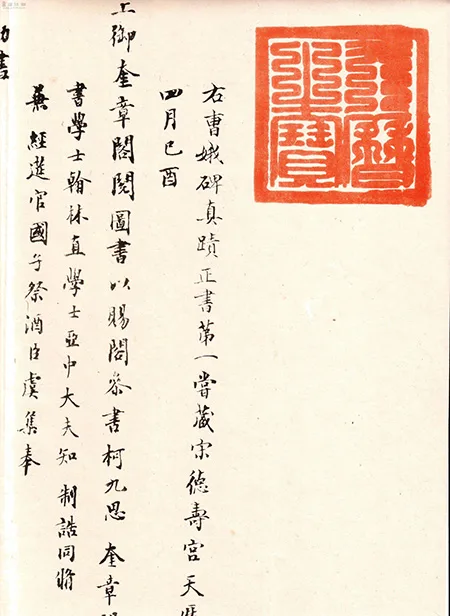 天曆之寶
右曹娥碑真蹟正書第一嘗藏宋德壽宮天曆
四月己酉
上御奎章閣閱圖書以賜閣參書柯九思 奎章閣
書學士翰林直學士亞中大夫知 制誥同脩
兼經筵官國子祭酒臣虞集奉
勅書